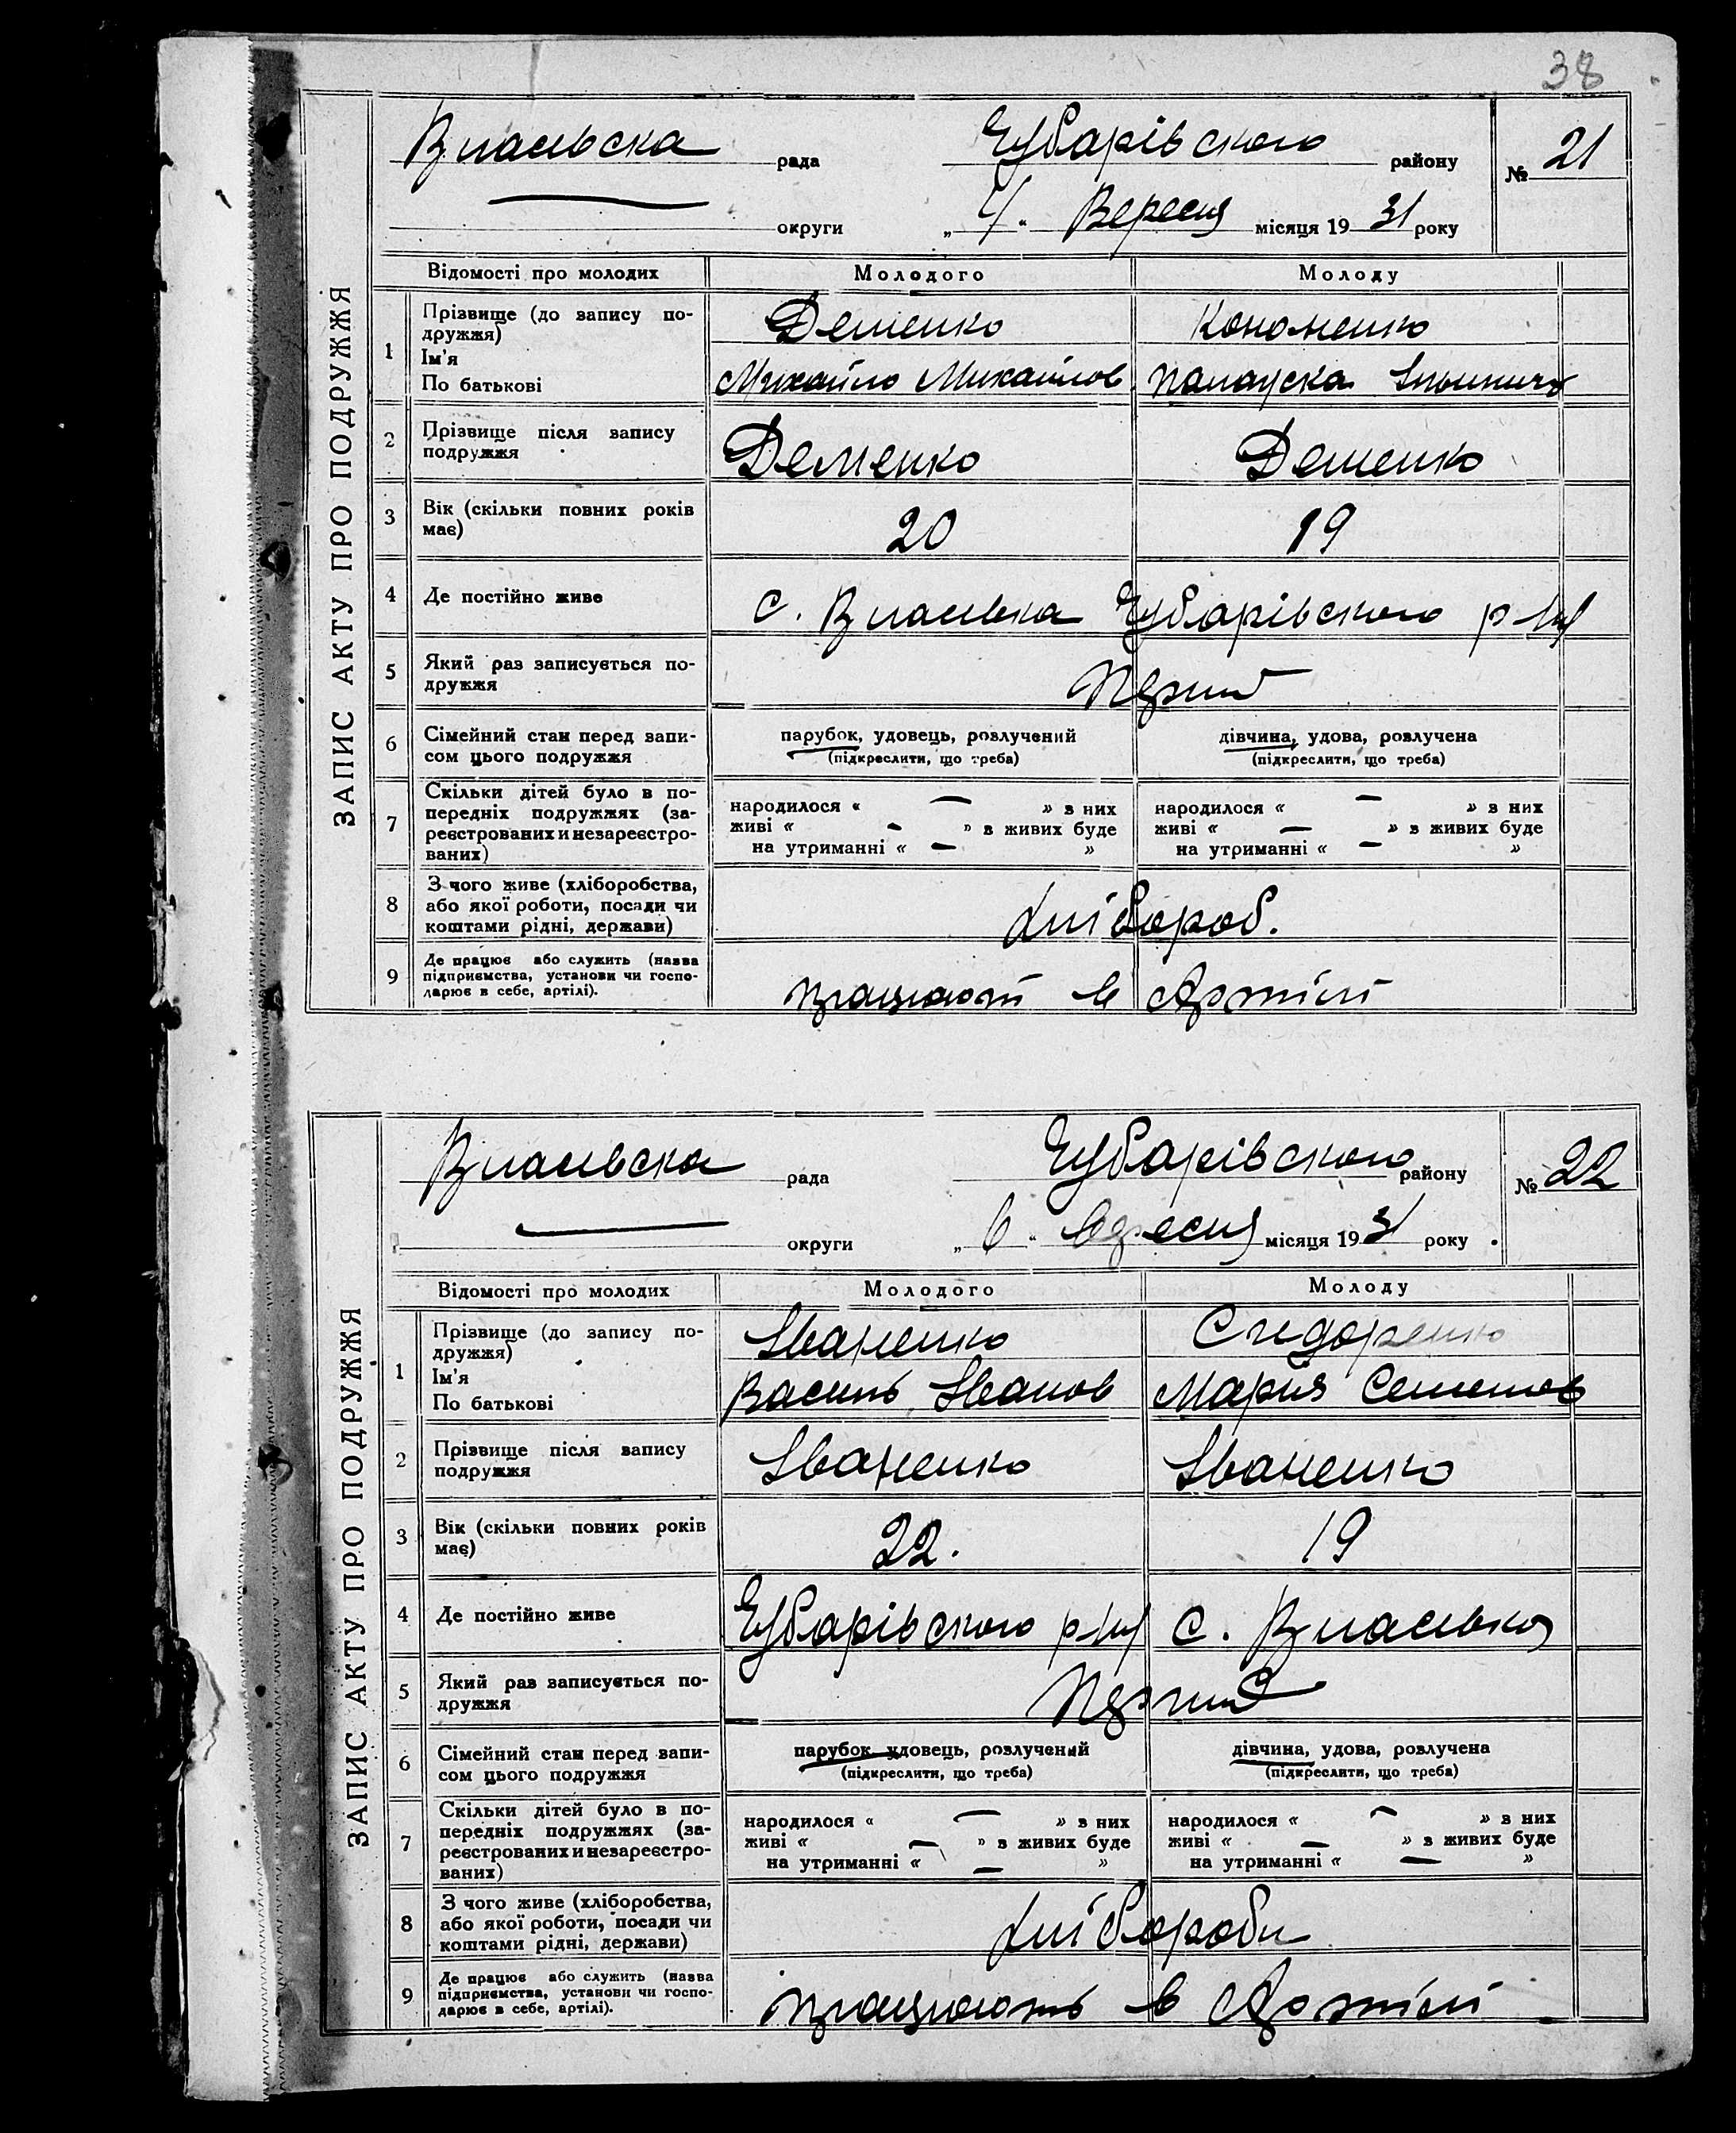 38
ЗАПИС АКТУ ПРО ПОДРУЖЖЯ
Власівська рада Чубарівського району № 21
округи „4“ Вересня місяця 1931 року
Відомості про молодих Молодого Молоду
1 Прізвище (до запису по-
дружжя) Деменко Кономенко
Ім'я
По батькові Михайло Михайлов Палажка
2 Прізвище після запису
подружжя Деменко Деменко
3 Вік (скільки повних років
має) 20 19
4 Де постійно живе с. Власівка Чубарівського р-ну
5 Який раз записується по-
дружжя Перший
6 Сімейний стан перед запи-
сом цього подружжя парубок, удовець, розлучений дівчина, удова, розлучена
(підкреслити, що треба) (підкреслити, що треба)
7 Скільки дітей було в по-
передніх подружжях (за-
реєстрованих и незареєстро-
ваних)
народилося « — » в них народилося « — » в них
живі « — » в живих буде живі « — » в живих буде
на утриманні « — » на утриманні « — »
8 З чого живе (хліборобства,
або якої роботи, посади чи
коштами рідні, держави) хлібороб.
9 Де працює або служить (назва
підприємства, установи чи госпо-
дарює в себе, артілі). працюють в Артілі
ЗАПИС АКТУ ПРО ПОДРУЖЖЯ
Власівська рада Чубарівського району № 22
округи „6“ вересня місяця 1931 року
Відомості про молодих Молодого Молоду
1 Прізвище (до запису по-
дружжя) Іваненко Сидоренко
Ім'я
По батькові Василь Іванов Мария Семенов
2 Прізвище після запису
подружжя Іваненко Іваненко
3 Вік (скільки повних років
має) 22. 19
4 Де постійно живе Чубарівського р-ну с. Власівка
5 Який раз записується по-
дружжя Перший
6 Сімейний стан перед запи-
сом цього подружжя парубок, удовець, розлучений дівчина, удова, розлучена
(підкреслити, що треба) (підкреслити, що треба)
7 Скільки дітей було в по-
передніх подружжях (за-
реєстрованих и незареєстро-
ваних)
народилося « — » в них народилося « — » в них
живі « — » в живих буде живі « — » в живих буде
на утриманні « — » на утриманні « — »
8 З чого живе (хліборобства,
або якої роботи, посади чи
коштами рідні, держави) хлібороби
9 Де працює або служить (назва
підприємства, установи чи госпо-
дарює в себе, артілі). працюють в Артілі